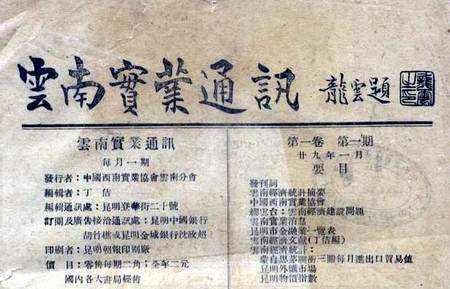 雲南實業通訊 龍雲題
雲南實業通訊
每月一期
發行者：中國西南實業協會雲南分會
編輯者：丁佶
編輯通訊處：昆明登華街二十號
訂閱及廣告接洽通訊處：昆明中國銀行
胡竹樵或昆明金城銀行沈政超
印刷者：昆明朝報印刷廠
價目：零售每期二角；全年二元
國內各大書局經售
第一卷 第一期
廿九年一月
要目
發刊詞
雲南經濟統計摘要
中國西南實業協會
繆雲台：雲南經濟建設問題
雲南實業消息
昆明市金融業一覽表
雲南經濟文獻（丁佶編）
雲南經濟統計：
蒙自思茅騰衝三關每月進出口貿易值
昆明外匯市場
昆明物價指數